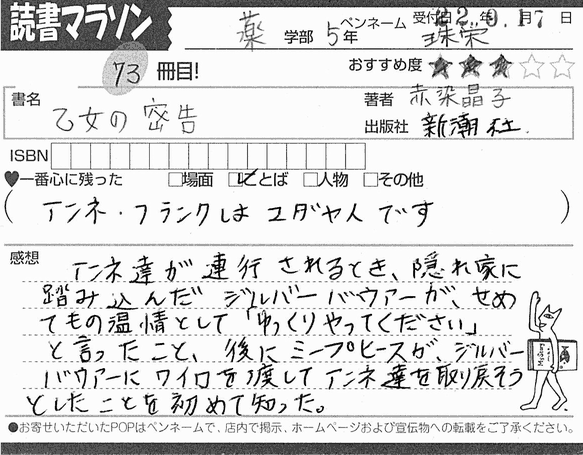 読書マラソン
薬 学部 5年 ペンネーム 珠栄 受付日 22年 9月 17日
73 冊目! おすすめ度 ★★★☆☆
書名 乙女の密告 著者 赤染晶子
出版社 新潮社.
ISBN
♥一番心に残った □場面 ☑ことば □人物 □その他
(アンネ・フランクはユダヤ人です)
感想
アンネ達が連行されるとき、隠れ家に
踏み込んだジルバーバウァーが、せめ
てもの温情として「ゆっくりやってください」
と言ったこと、後にミープヒースが、ジルバー
バウァーにワイロを渡してアンネ達を取り戻そう
としたことを初めて知った。
Mystery
●お寄せいただいたPOPはペンネームで、店内で掲示、ホームページおよび宣伝物への転載をご了承ください。